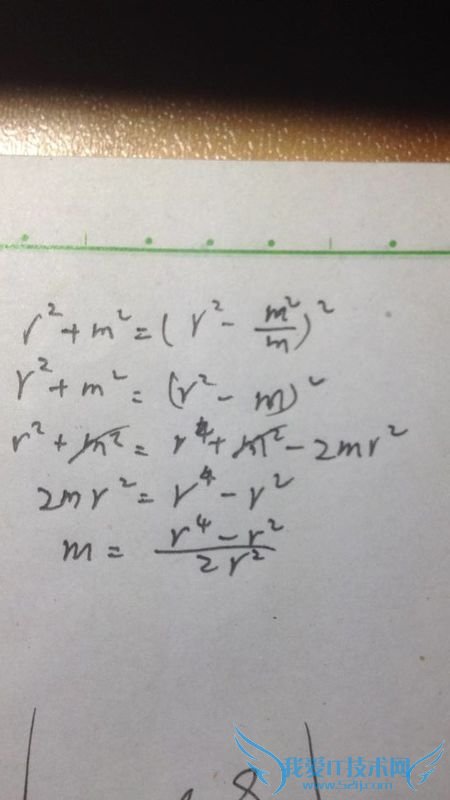 r² + m² = ( r² - m²/m )²
r² + m² = (r² - m)²
r² + m² = r⁴ + m² - 2mr²
2mr² = r⁴ - r²
m = r⁴ - r² / 2r²
8
我爱IT技术网
www.52ij.com